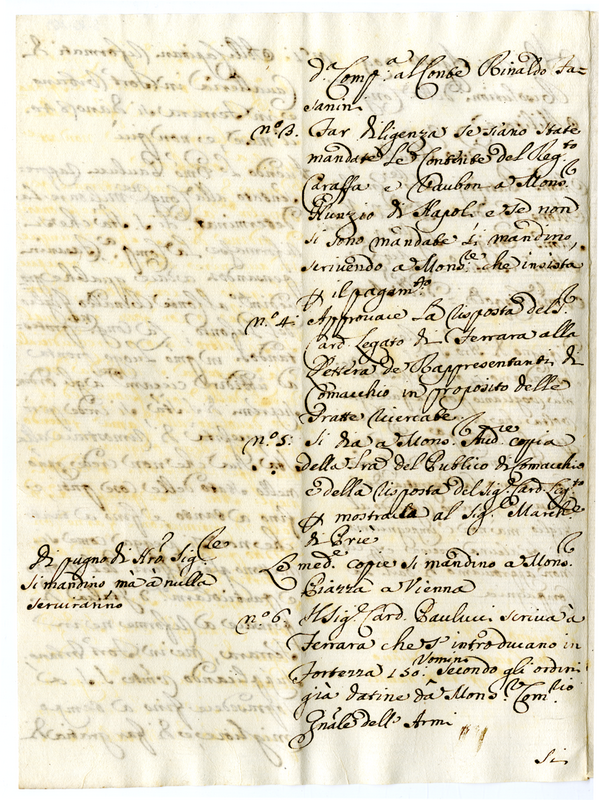 d.ª Comp.ª al Conte Rinaldo Za=
sanini
n.º 3. Far diligenza se siano state
mandate le Contente del Reg.to
Caraffa e Vaubon a Mons.r
Nunzio di Napoli e se non
si sono mandate si mandino,
scrivendo a Mons.re che insista
p il pagam.to
n.º 4. Approvare la risposta del S.r
Card. Legato di Ferrara alla
lettera de Rappresentanti di
Comacchio in proposito delle
Tratte ricercate
n.º 5: Si dia a Mons.r Aud.re copia
della lra del Publico di Comacchio
e della risposta del Sig.r Card. Leg.to
p mostrarla al Sig.r March.e
di Priè
Le med.e copie si mandino a Mons.r
Piazza a Vienna
di pugno di Nro Sig.re
si mandino ma a nulla
serviranno
n.º 6 Il Sig.r Card. Paulucci scriva à
Ferrara che s'introducano in
fortezza 150. Uomini secondo gli ordini
già datine da Mons.r Com.rio
Gnale dell'Armi
Si